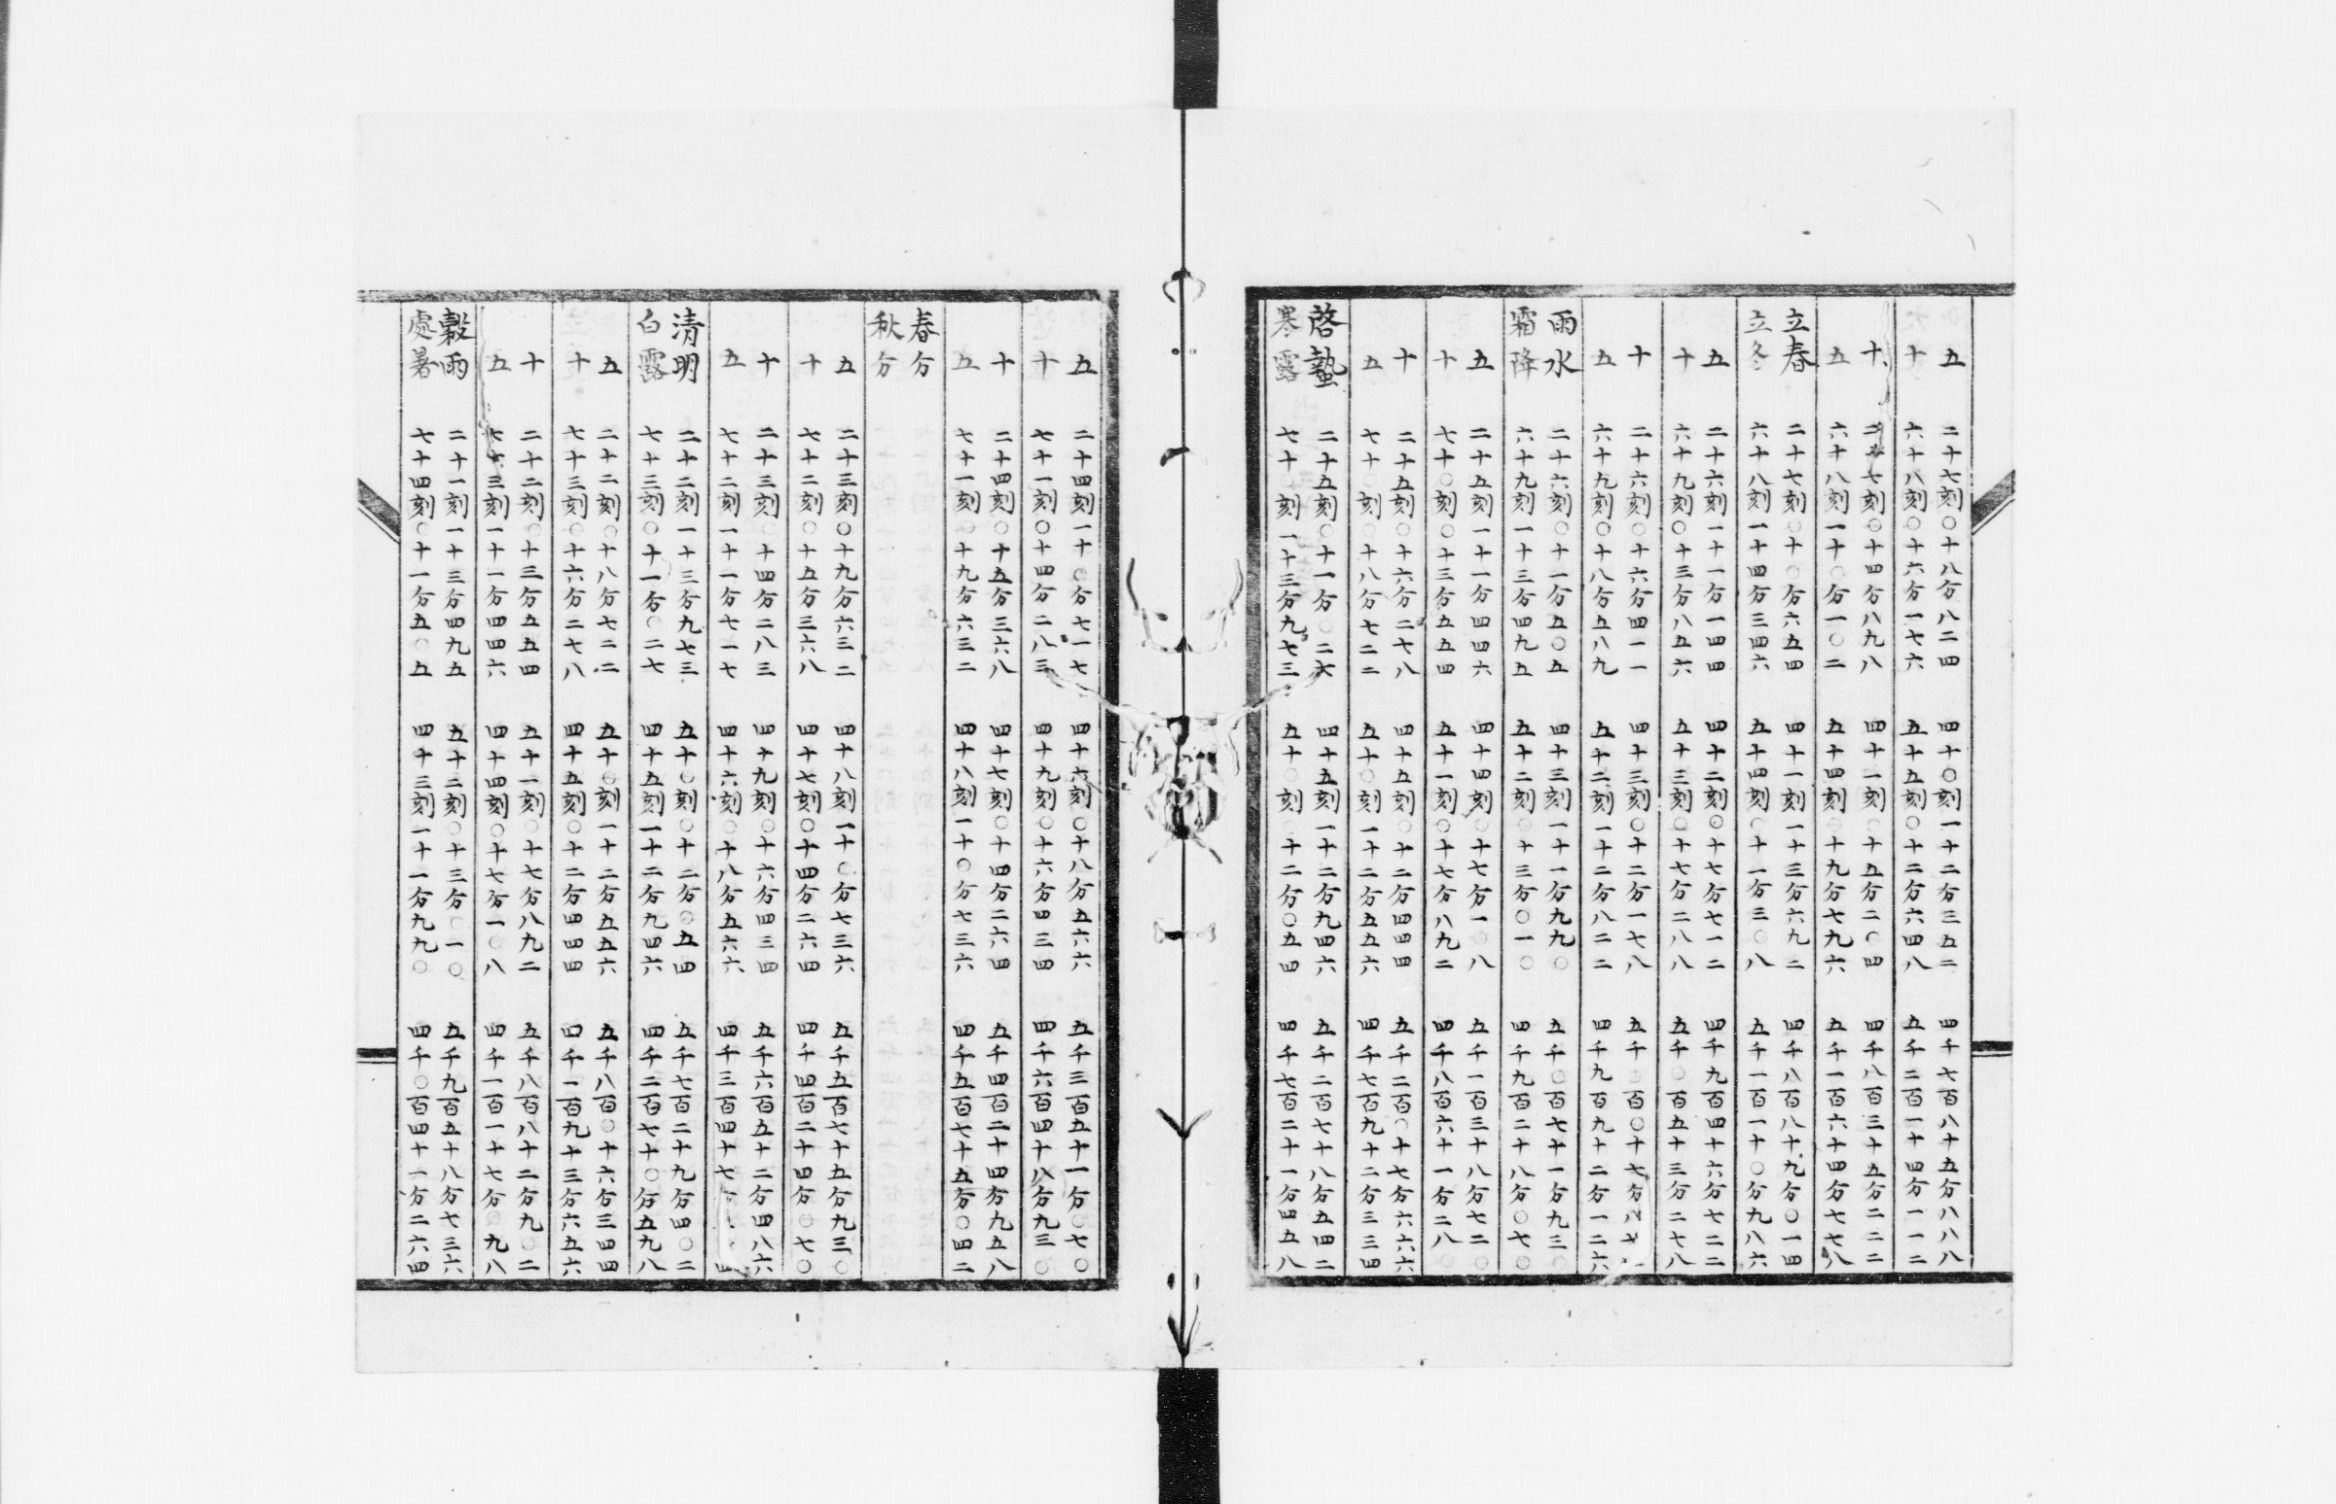 五 二十七刻〇十八分八二四 四十〇刻一十二分三五二 四千七百八十五分八八八
十 六十八刻〇十六分一七六 五十五刻〇十二分六四八 五千二百一十四分一一二
十 二十七刻〇十四分八九八 四十一刻〇十五分二〇四 四千八百三十五分二二二
五 六十八刻一十〇分一〇二 五十四刻〇十九分七九六 五千一百六十四分七七八
立春 二十七刻〇十〇分六五四 四十一刻一十三分六九二 四千八百八十九分〇一四
立冬 六十八刻一十四分三四六 五十四刻〇十一分三〇八 五千一百一十〇分九八六
五 二十六刻一十一分一四四 四十二刻〇十七分七一二 四千九百四十六分七二二
十 六十九刻〇十三分八五六 五十三刻〇十七分二八八 五千〇百五十三分二七八
十 二十六刻〇十六分四一一 四十三刻〇十二分一七八 五千〇百〇十七分八
五 六十九刻〇十八分五八九 五十二刻一十二分八二二 四千九百九十二分一二六
雨水 二十六刻〇十一分五〇五 四十三刻一十一分九九〇 五千〇百七十一分九三〇
霜降 六十九刻一十三分四九五 五十二刻〇十三分〇一〇 四千九百二十八分〇七〇
五 二十五刻一十一分四四六 四十四刻〇十七分一〇八 五千一百三十八分七二〇
十 七十〇刻〇十三分五五四 五十一刻〇十七分八九二 四千八百六十一分二八〇
十 二十五刻〇十六分二七八 四十五刻〇十二分四四四 五千二百〇十七分六六六
五 七十〇刻〇十八分七二二 五十〇刻一十二分五五六 四千七百九十二分三三四
啓蟄 二十五刻〇十一分〇二七 四十五刻一十二分九四六 五千二百七十八分五四二
寒露 七十〇刻一十三分九七三 五十〇刻〇十二分〇五四 四千七百二十一分四五八
五 二十四刻一十〇分七一七 四十六刻〇十八分五六六 五千三百五十一分〇七〇
十 七十一刻〇十四分二八三 四十九刻〇十六分四三四 四千六百四十八分九三〇
十 二十四刻〇十五分三六八 四十七刻〇十四分二六四 五千四百二十四分九五八
五 七十一刻〇十九分六三二 四十八刻一十〇分七三六 四千五百七十五分〇四二
春分
秋分
五 二十三刻〇十九分六三二 四十八刻一十〇分七三六 五千五百七十五分九三〇
十 七十二刻〇十五分三六八 四十七刻〇十四分二六四 四千四百二十四分〇七〇
十 二十三刻〇十四分二八三 四十九刻〇十六分四三四 五千六百五十二分四八六
五 七十二刻一十一分七一七 四十六刻〇十八分五六六 四千三百四十七
清明 二十二刻一十三分九七三 五十〇刻〇十二分〇五四 五千七百二十九分四〇二
白露 七十三刻〇十一分〇二七 四十五刻一十二分九四六 四千二百七十〇分五九八
五 二十二刻〇十八分七二二 五十〇刻一十二分五五六 五千八百〇十六分三四四
十 七十三刻〇十六分二七八 四十五刻〇十二分四四四 四千一百九十三分六五六
十 二十二刻〇十三分五五四 五十一刻〇十七分八九二 五千八百八十二分九〇二
五 七十三刻一十一分四四六 四十四刻〇十七分一〇八 四千一百一十七分〇九八
穀雨 二十一刻一十三分四九五 五十二刻〇十三分〇一〇 五千九百五十八分七三六
處暑 七十四刻〇十一分五〇五 四十三刻一十一分九九〇 四千〇百四十一分二六四